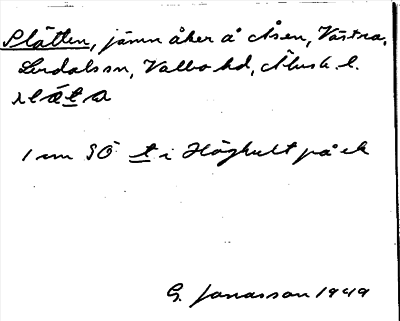 Slätten, jämn åker å Åsen, Västra,
Lerdals sn, Valbo hd, Älvsb. l.
slæ̀ta
1 cm SÖ t i Höghult på ek
G. Jonasson 1949